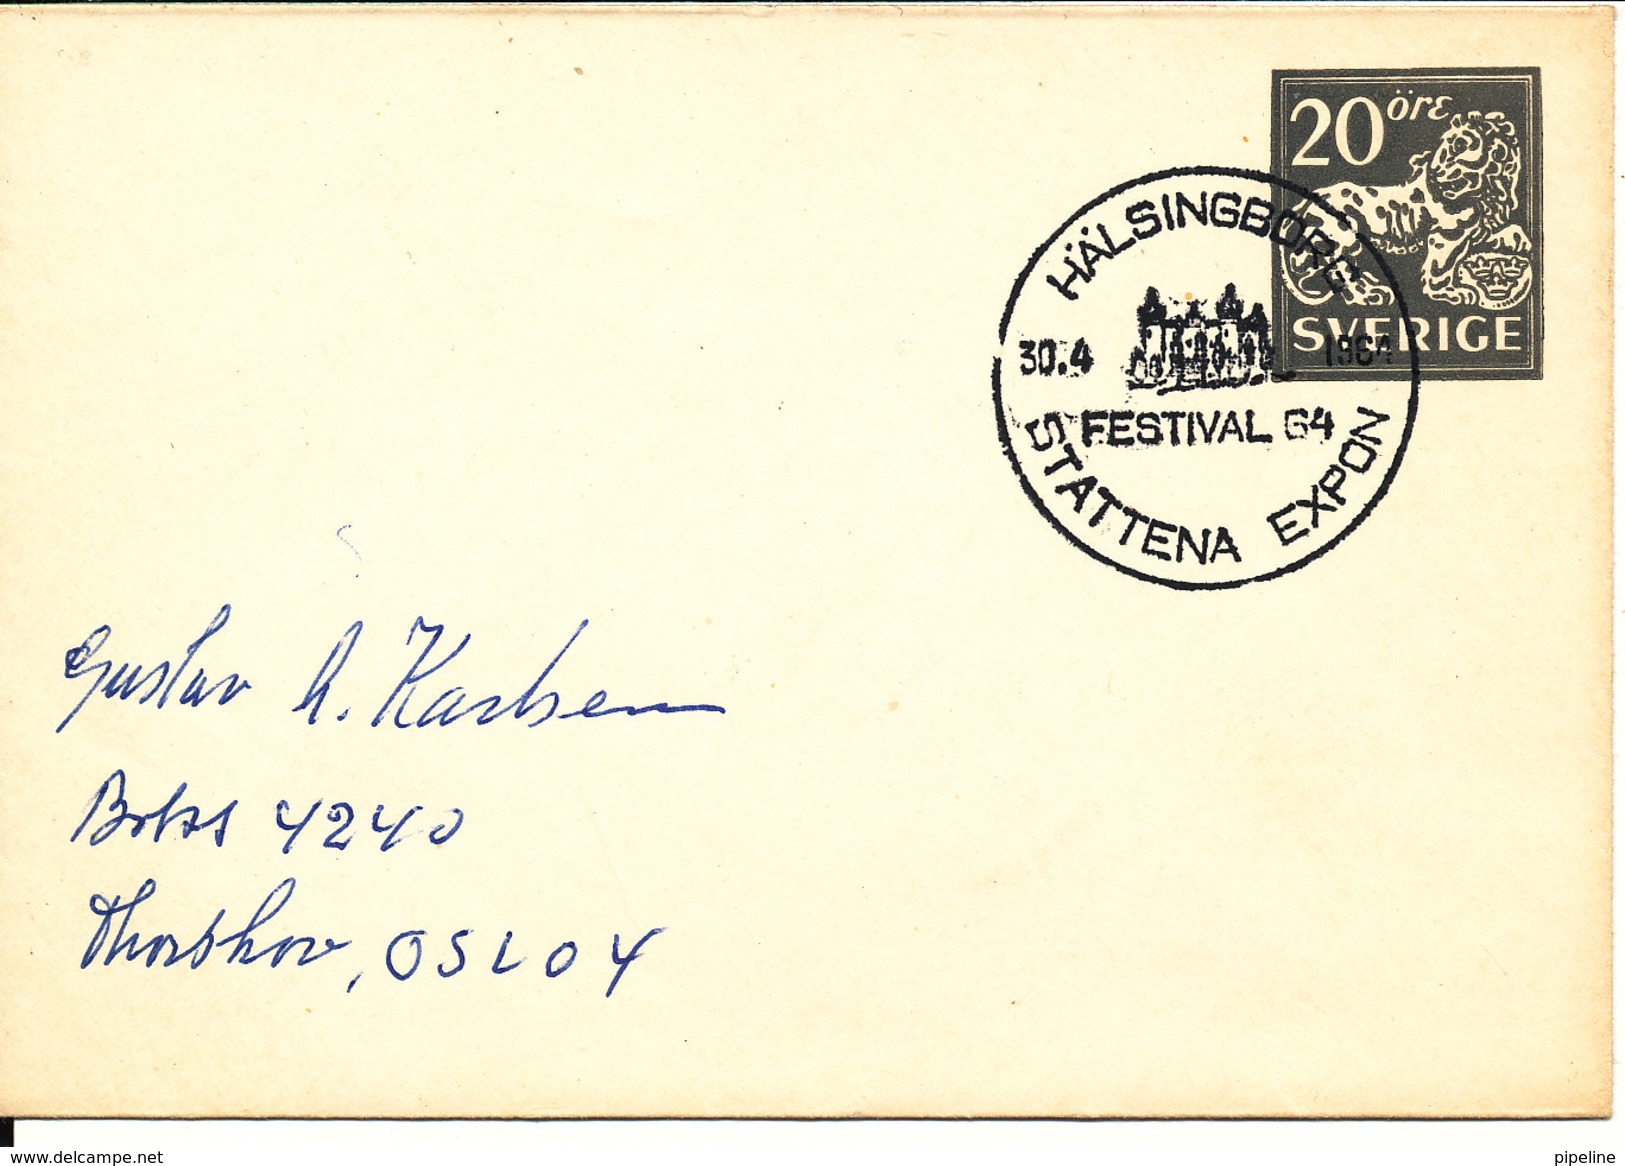 20 öre
SVERIGE
HÄLSINGBORG
30.4 1964
FESTIVAL 64
STATTENA EXPON
Gustav A. Karlsen
Boks 4240
Thorshov, OSLO 4
delcampe.net
pipeline